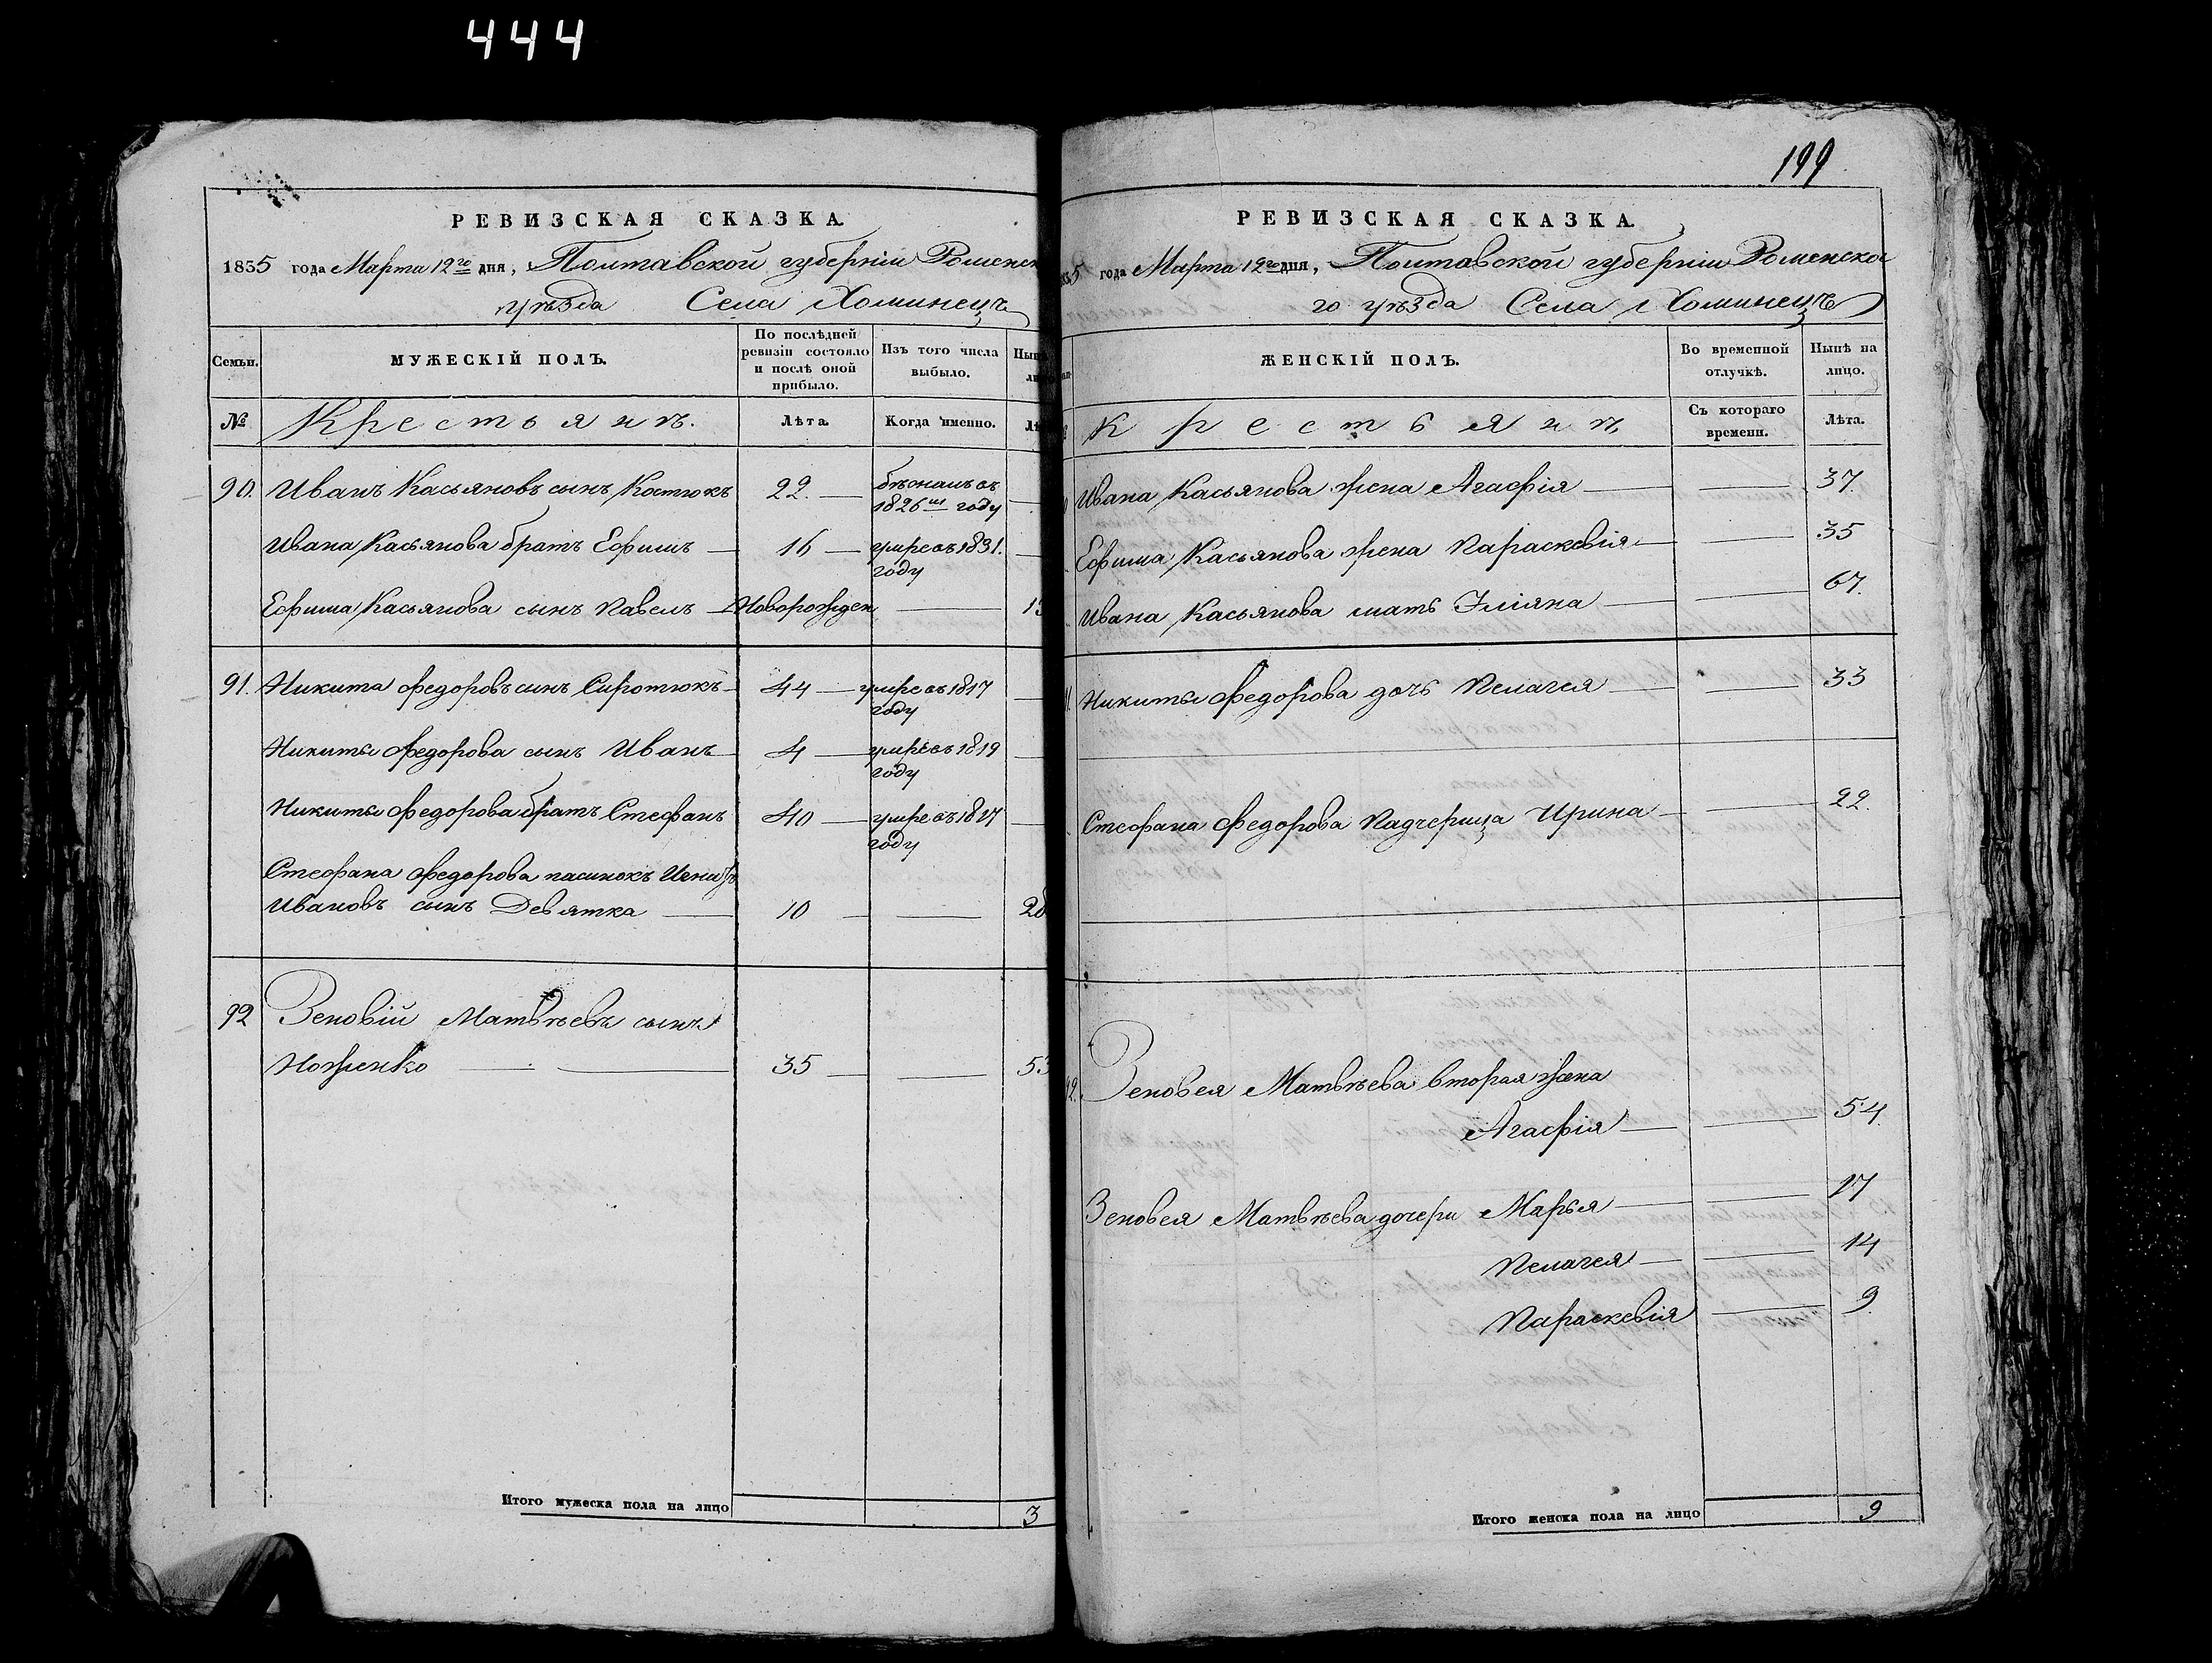 444
РЕВИЗСКАЯ СКАЗКА.
1835 года Марта 12го дня, Полтавской губерніи Роменск
уѣзда Села Хоминецъ
Семьи. МУЖЕСКІЙ ПОЛЪ. По послѣдней ревизіи состояло и послѣ оной прибыло. Изъ того числа выбыло.
№ Крестьянъ. Лѣта. Когда именно.
90. Иванъ Касьяновъ сынъ Костюкъ 22. бѣжалъ въ
1826м году
Ивана Касьянова братъ Ефимъ 16 умре въ 1831.
году
Ефима Касьянова сынъ Павелъ Новорожден
91. Никита Федоровъ сынъ Сиротюкъ 44 умре въ 1817
году
Никиты Федорова сынъ Иванъ 4 умре въ 1819
году
Никиты Федорова братъ Стефанъ 40 умре въ 1827
году
Стефана Федорова пасинокъ
Ивановъ сынъ Девятка 10 28
92 Зеновій Матвѣевъ сынъ
Ноженко 35 53
Итого мужеска пола на лицо 3
199
РЕВИЗСКАЯ СКАЗКА.
5 года Марта 12го дня, Полтавской губерніи Роменско
го уѣзда Села Хоминецъ
ЖЕНСКІЙ ПОЛЪ. Во временной отлучкѣ. Нынѣ на лицо.
Крестьянъ Съ котораго времени. Лѣта.
Ивана Касьянова жена Агафія 37.
Ефима Касьянова жена Параскевія 35
Ивана Касьянова мать Уліяна 67.
Никиты Федорова дочь Пелагея 33
Стефана Федорова Падчерица Ирина 22.
92. Зеновея Матвѣева вторая жена
Агафія 54.
Зеновея Матвѣева дочери Марья 17
Пелагея 14
Параскевія 9.
Итого женска пола на лицо 9